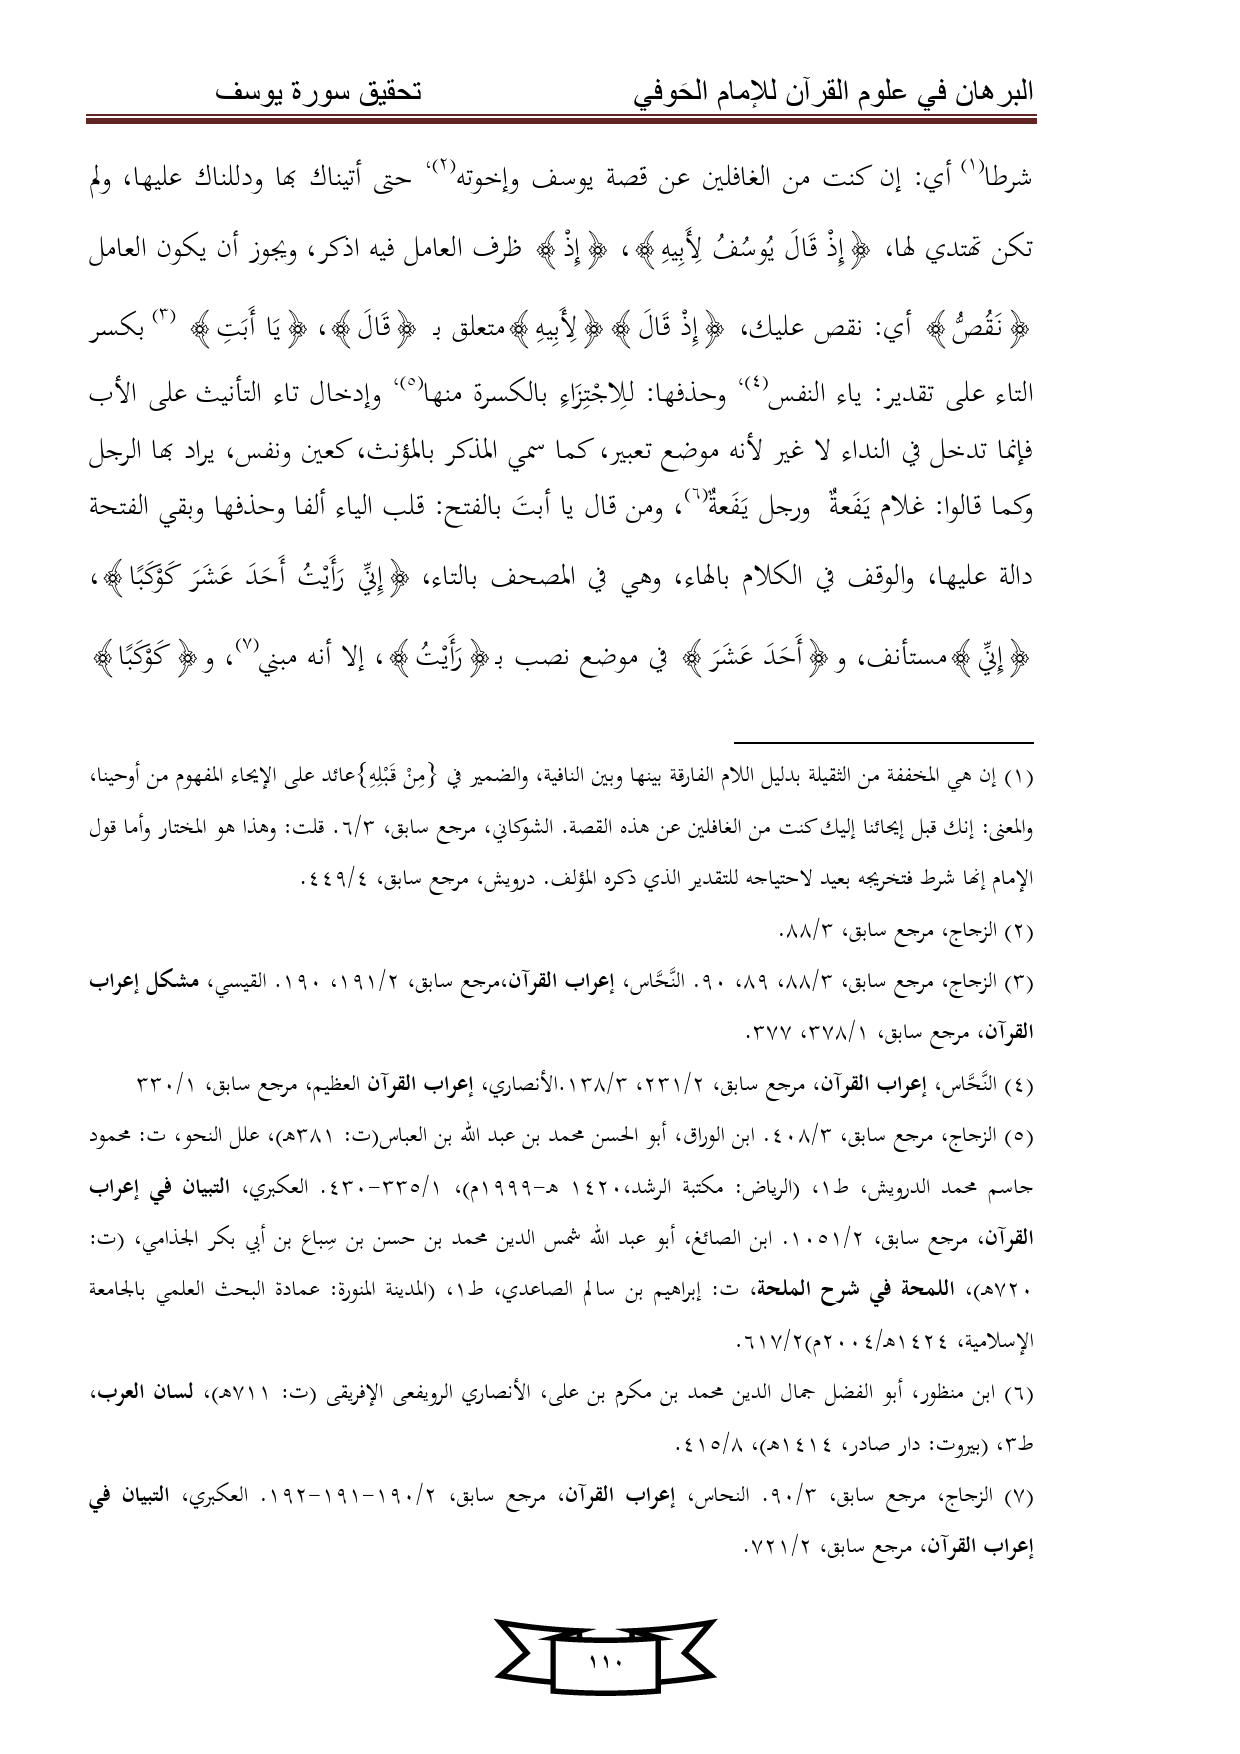 البرهان في علوم القرآن للإمام الحَوفي تحقيق سورة يوسف
شرطا(١) أي: إن كنت من الغافلين عن قصة يوسف وإخوته(٢)، حتى أتيناك بها ودللناك عليها، ولم
تكن تهتدي لها، ﴿إِذْ قَالَ يُوسُفُ لِأَبِيهِ﴾، ﴿إِذْ﴾ ظرف العامل فيه اذكر، ويجوز أن يكون العامل
﴿نَقُصُّ﴾ أي: نقص عليك، ﴿إِذْ قَالَ﴾ ﴿لِأَبِيهِ﴾متعلق بـ ﴿قَالَ﴾، ﴿يَا أَبَتِ﴾ (٣) بكسر
التاء على تقدير: ياء النفس(٤)، وحذفها: لِلاجْتِزَاءِ بالكسرة منها(٥)، وإدخال تاء التأنيث على الأب
فإنما تدخل في النداء لا غير لأنه موضع تعبير، كما سمي المذكر بالمؤنث، كعين ونفس، يراد بها الرجل
وكما قالوا: غلام يَفَعةٌ ورجل يَفَعةٌ(٦)، ومن قال يا أبتَ بالفتح: قلب الياء ألفا وحذفها وبقي الفتحة
دالة عليها، والوقف في الكلام بالهاء، وهي في المصحف بالتاء، ﴿إِنِّي رَأَيْتُ أَحَدَ عَشَرَ كَوْكَبًا﴾،
﴿إِنِّي﴾مستأنف، و﴿أَحَدَ عَشَرَ﴾ في موضع نصب بـ﴿رَأَيْتُ﴾، إلا أنه مبني(٧)، و﴿كَوْكَبًا﴾
(١) إن هي المخففة من الثقيلة بدليل اللام الفارقة بينها وبين النافية، والضمير في {مِنْ قَبْلِهِ}عائد على الإيحاء المفهوم من أوحينا،
والمعنى: إنك قبل إيحائنا إليك كنت من الغافلين عن هذه القصة. الشوكاني، مرجع سابق، ٦/٣. قلت: وهذا هو المختار وأما قول
الإمام إنها شرط فتخريجه بعيد لاحتياجه للتقدير الذي ذكره المؤلف. درويش، مرجع سابق، ٤٤٩/٤.
(٢) الزجاج، مرجع سابق، ٨٨/٣.
(٣) الزجاج، مرجع سابق، ٨٨/٣، ٨٩، ٩٠. النَّحَّاس، إعراب القرآن،مرجع سابق، ١٩١/٢، ١٩٠. القيسي، مشكل إعراب
القرآن، مرجع سابق، ٣٧٨/١، ٣٧٧.
(٤) النَّحَّاس، إعراب القرآن، مرجع سابق، ٢٣١/٢، ١٣٨/٣.الأنصاري، إعراب القرآن العظيم، مرجع سابق، ٣٣٠/١
(٥) الزجاج، مرجع سابق، ٤٠٨/٣. ابن الوراق، أبو الحسن محمد بن عبد الله بن العباس(ت: ٣٨١هـ)، علل النحو، ت: محمود
جاسم محمد الدرويش، ط١، (الرياض: مكتبة الرشد،١٤٢٠ هـ-١٩٩٩م)، ٣٣٥/١-٤٣٠. العكبري، التبيان في إعراب
القرآن، مرجع سابق، ١٠٥١/٢. ابن الصائغ، أبو عبد الله شمس الدين محمد بن حسن بن سِباع بن أبي بكر الجذامي، (ت:
٧٢٠هـ)، اللمحة في شرح الملحة، ت: إبراهيم بن سالم الصاعدي، ط١، (المدينة المنورة: عمادة البحث العلمي بالجامعة
الإسلامية، ١٤٢٤هـ/٢٠٠٤م)٦١٧/٢.
(٦) ابن منظور، أبو الفضل جمال الدين محمد بن مكرم بن على، الأنصاري الرويفعى الإفريقى (ت: ٧١١هـ)، لسان العرب،
ط٣، (بيروت: دار صادر، ١٤١٤هـ)، ٤١٥/٨.
(٧) الزجاج، مرجع سابق، ٩٠/٣. النحاس، إعراب القرآن، مرجع سابق، ١٩٠/٢-١٩١-١٩٢. العكبري، التبيان في
إعراب القرآن، مرجع سابق، ٧٢١/٢.
١١٠